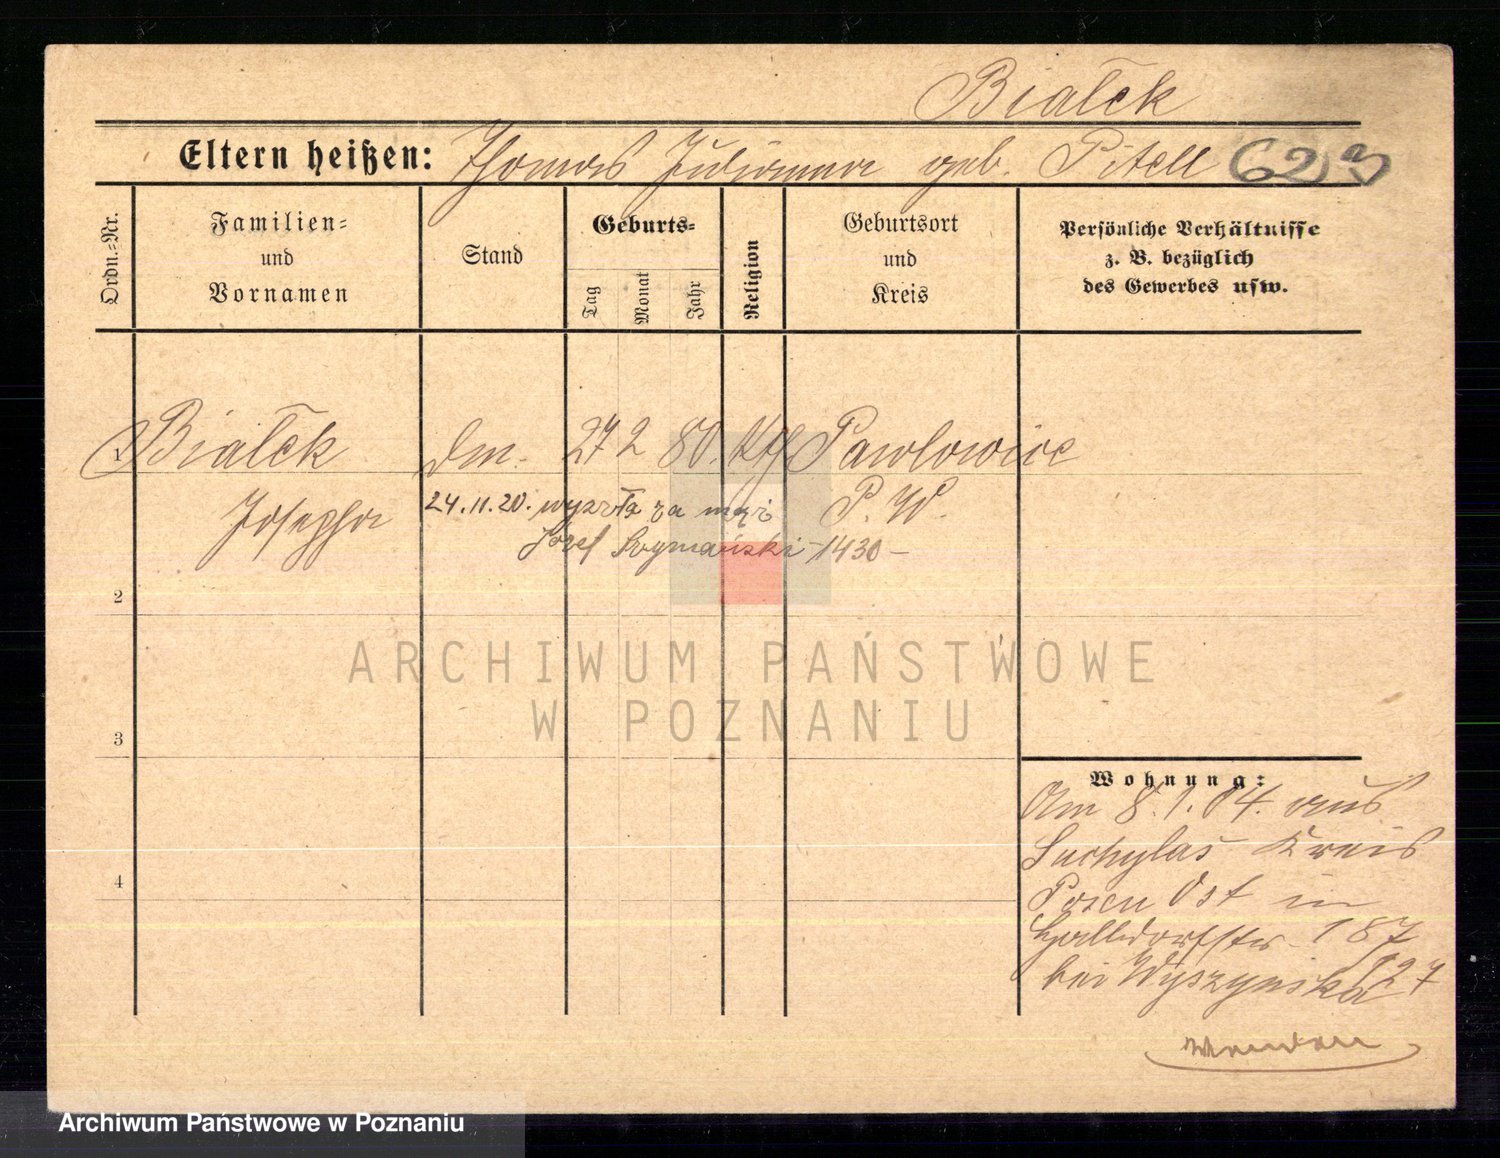 Białek
Eltern heißen: Thomas Julianna geb. Pitell 6213
Ordn.=Nr.
Familien=
und
Vornamen
Stand
Geburts=
Tag
Monat
Jahr
Religion
Geburtsort
und
Kreis
Persönliche Verhältnisse
z. B. bezüglich
des Gewerbes usw.
1 Białek 27 2 80. kth Pawlowice
Josepha 24.11.20. wyszła za mąż P. W.
Józef Szymański 1430 –
2
3
4
Wohnung:
Am 8.1.04. aus
Suchylas Kreis
Posen Ost in
187
bei Wyszynska 127
Wenden
ARCHIWUM PAŃSTWOWE
W POZNANIU
Archiwum Państwowe w Poznaniu